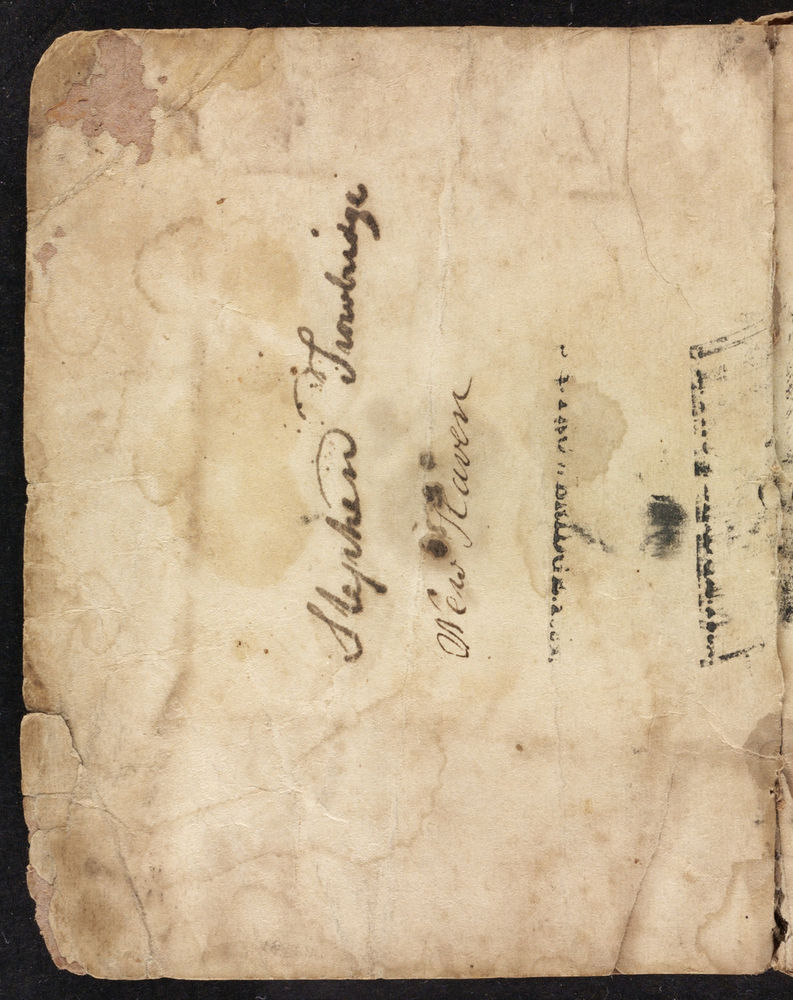 Stephen Trowbridge
New Haven